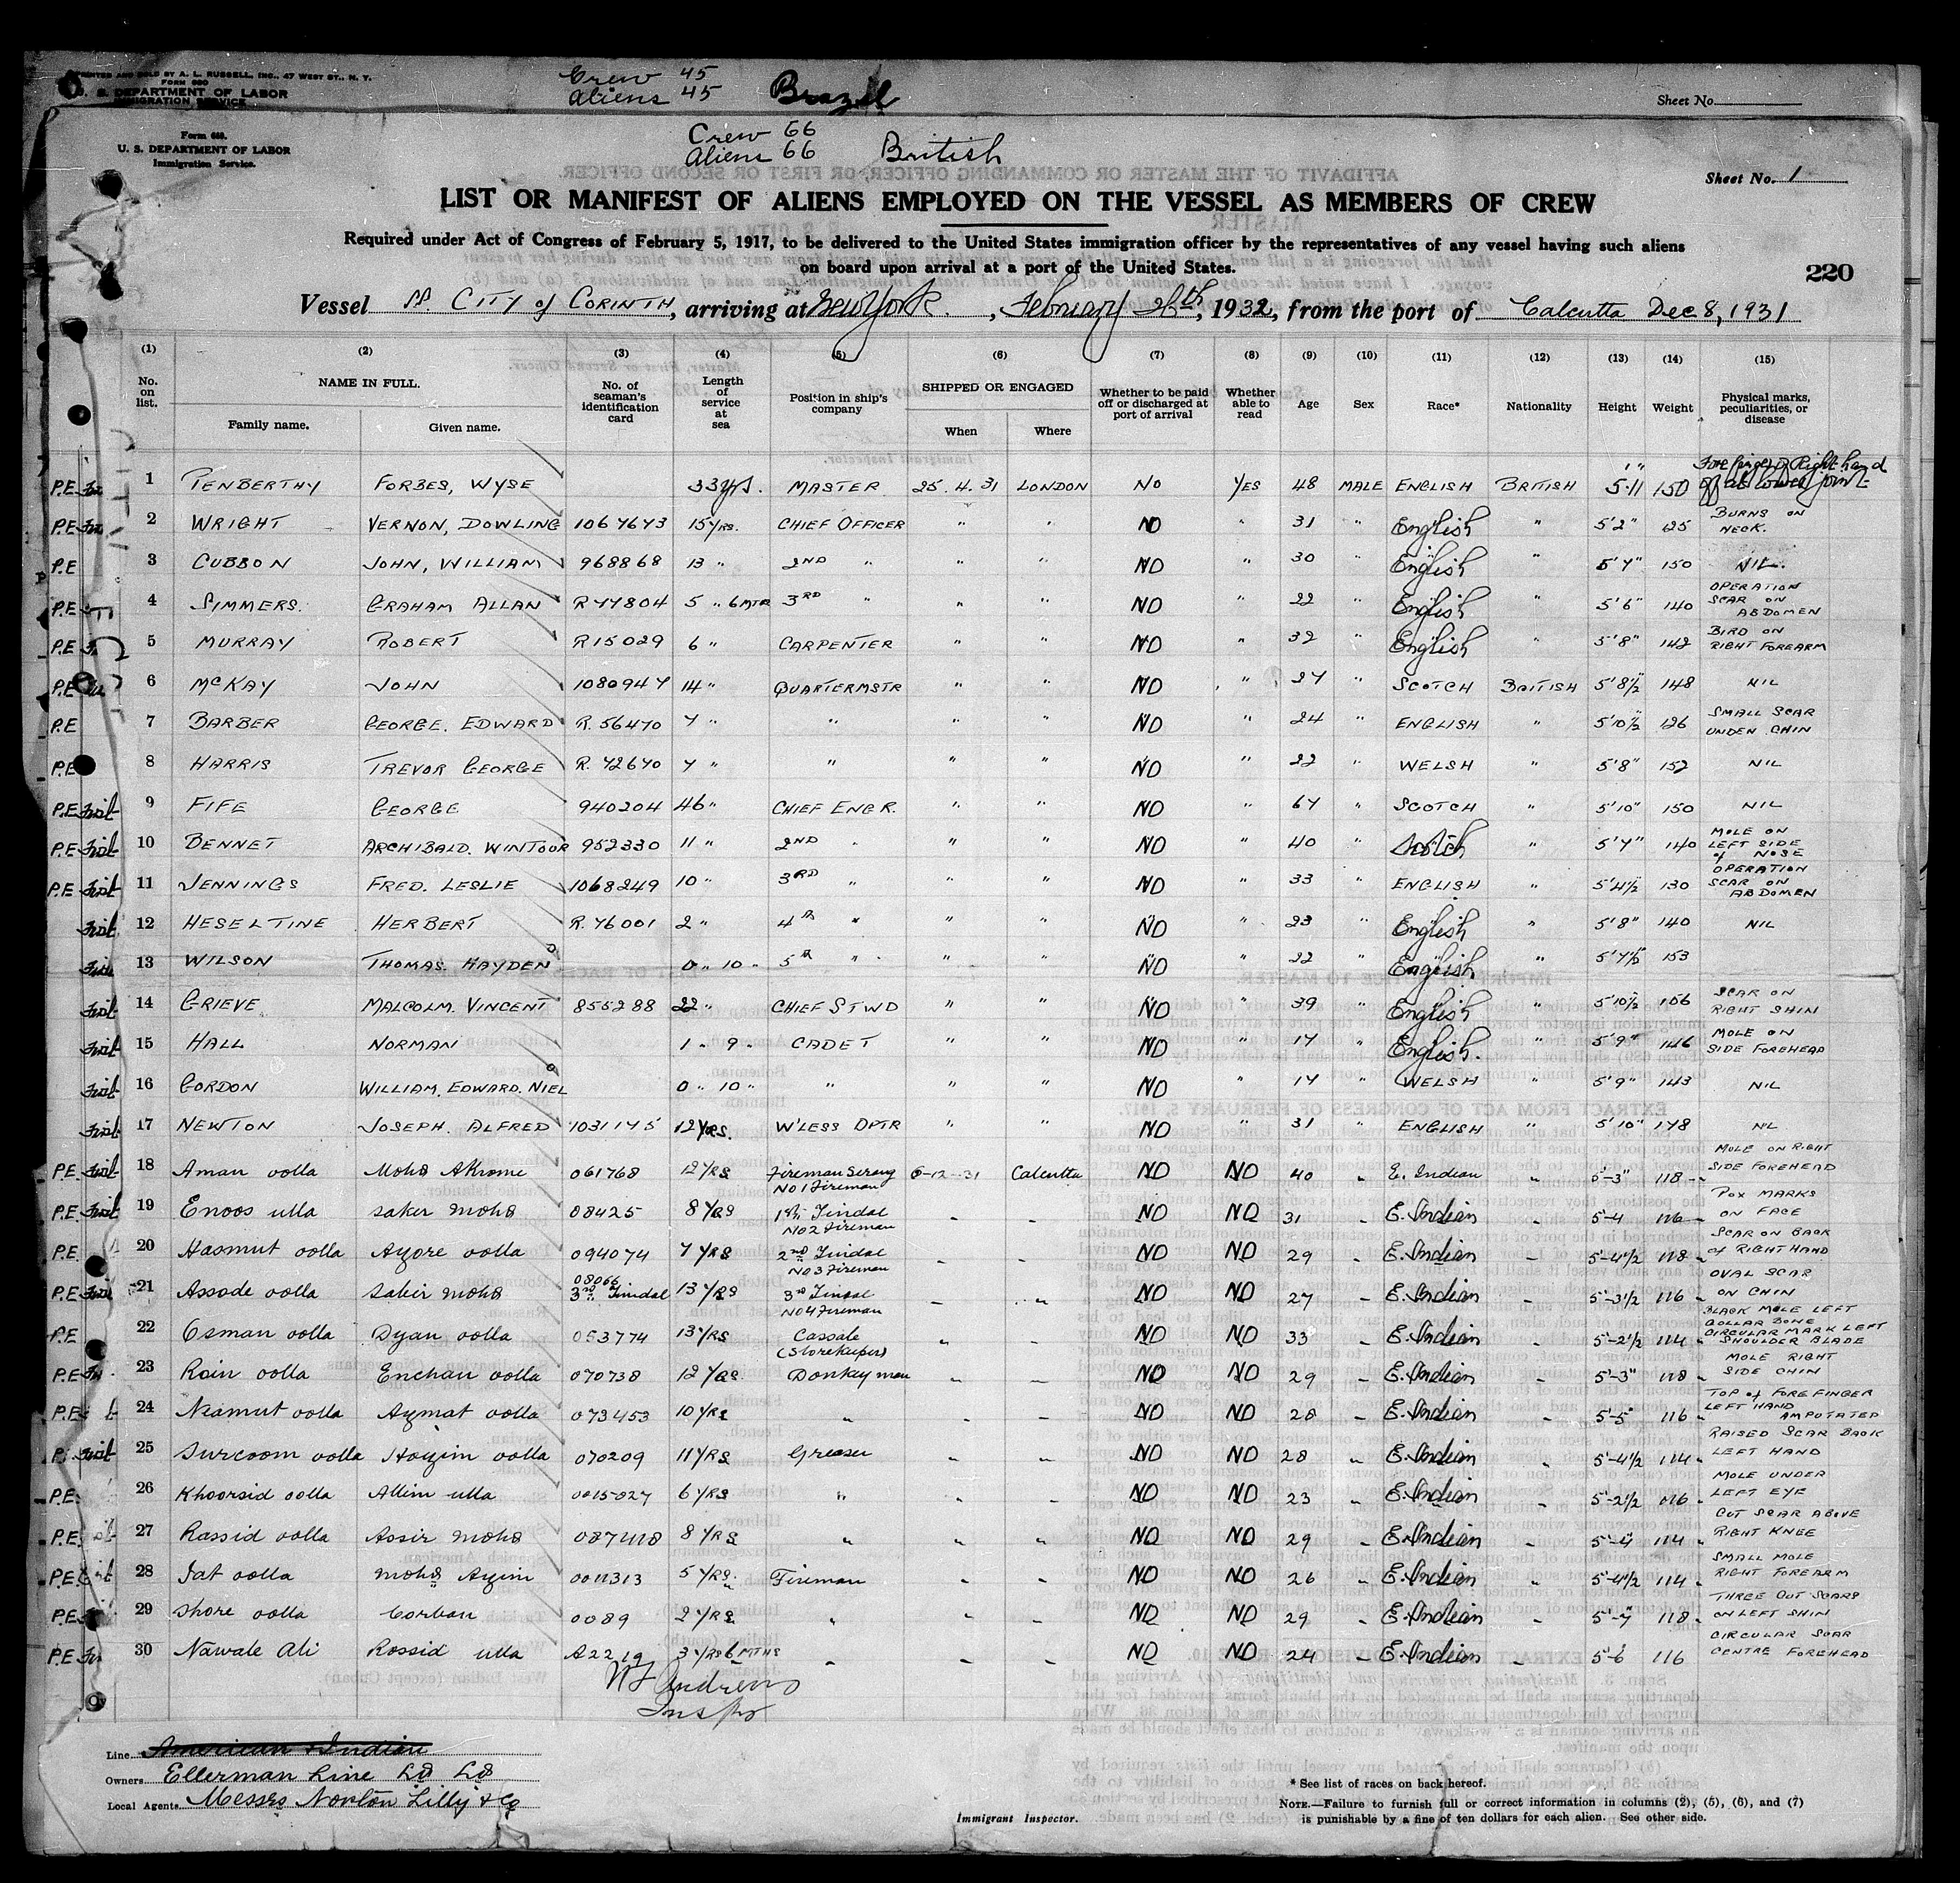 PRINTED AND SOLD BY A. L. RUSSELL, INC., 47 WEST ST., N. Y.
FORM 680
U. S. DEPARTMENT OF LABOR
IMMIGRATION SERVICE
Crew 45
Aliens 45 Brazil
Sheet No.
Form 680.
U. S. DEPARTMENT OF LABOR
Immigration Service.
Crew 66
Aliens 66 British
Sheet No. 1
LIST OR MANIFEST OF ALIENS EMPLOYED ON THE VESSEL AS MEMBERS OF CREW
Required under Act of Congress of February 5, 1917, to be delivered to the United States immigration officer by the representatives of any vessel having such aliens
on board upon arrival at a port of the United States.
220
Vessel SS. CITY of CORINTH, arriving at New York., February 1932, from the port of Calcutta Dec 8, 1931
(1) (2) (3) (4) (5) (6) (7) (8) (9) (10) (11) (12) (13) (14) (15)
No. on list. NAME IN FULL. Family name. Given name. No. of seaman's identification card Length of service at sea Position in ship's company SHIPPED OR ENGAGED When Where Whether to be paid off or discharged at port of arrival Whether able to read Age Sex Race* Nationality Height Weight Physical marks, peculiarities, or disease
P.E 1 PENBERTHY FORBES, WYSE 33 yrs. MASTER 25.4.31 LONDON NO YES 48 MALE ENGLISH BRITISH 5.11 150 Fore finger of Right hand off at lower joint
P.E 2 WRIGHT VERNON, DOWLING 1067673 15 YRS. CHIEF OFFICER " " NO " 31 " English " 5'2" 125 BURNS ON NECK.
P.E 3 CUBBON JOHN, WILLIAM 968868 13 " 2ND " " " NO " 30 " English " 5'7" 150 NIL.
P.E 4 SIMMERS. GRAHAM ALLAN R77804 5 " 6 MTHS 3RD " " " NO " 22 " English " 5'6" 140 OPERATION SCAR ON ABDOMEN
P.E 5 MURRAY ROBERT R15029 6 " CARPENTER " " NO " 32 " English " 5'8" 142 BIRD ON RIGHT FOREARM
P.E 6 McKAY JOHN 1080947 14 " QUARTERMSTR " " NO " 27 " SCOTCH BRITISH 5'8½" 148 NIL
P.E 7 BARBER GEORGE. EDWARD R.56470 7 " " " " NO " 24 " ENGLISH " 5'10½" 126 SMALL SCAR UNDER CHIN
P.E 8 HARRIS TREVOR GEORGE R.72670 7 " " " " NO " 22 " WELSH " 5'8" 152 NIL
P.E First 9 FIFE GEORGE 940204 46 " CHIEF ENGR. " " NO " 67 " SCOTCH " 5'10" 150 NIL
P.E First 10 BENNET ARCHIBALD. WINTOUR 952330 11 " 2ND " " " NO " 40 " Scotch " 5'7" 140 MOLE ON LEFT SIDE of NOSE
P.E First 11 JENNINGS FRED. LESLIE 1068249 10 " 3RD " " " NO " 33 " ENGLISH " 5'4½ 130 OPERATION SCAR ON ABDOMEN
First 12 HESELTINE HERBERT R.76001 2 " 4th " " " NO " 23 " English " 5'8" 140 NIL
First 13 WILSON THOMAS. HAYDEN 0 " 10 " 5th " " " NO " 22 " English 5'7½" 153
First 14 GRIEVE MALCOLM. VINCENT 855288 22 " CHIEF STWD " " NO " 39 " English " 5'10½ 156 SCAR ON RIGHT SHIN
First 15 HALL NORMAN 1 " 9 " CADET " " NO " 17 " English. " 5'9" 146 MOLE ON SIDE FOREHEAD
First 16 GORDON WILLIAM. EDWARD. NIEL 0 " 10 " " " " NO " 17 " WELSH " 5'9" 143 NIL
First 17 NEWTON JOSEPH. ALFRED 1031175 12 YRS. W'LESS OPTR " " NO " 31 " ENGLISH " 5'10" 178 NIL
P.E First 18 Aman oolla Mohd Akrome 061768 12 YRS Fireman Serang No 1 Fireman 6-12-31 Calcutta NO NO 40 " E. Indian " 5-3" 118 MOLE ON RIGHT SIDE FOREHEAD
P.E First 19 Enoos ulla Saker Mohd 08425 8 YRS 1st Tindal No 2 Fireman " " NO NO 31 " E. Indian " 5-4 116 POX MARKS ON FACE
P.E. 20 Hasmut oolla Ayore oolla 094074 7 YRS 2nd Tindal No 3 Fireman " " NO NO 29 " E. Indian " 5-4½ 118 SCAR ON BACK of RIGHT HAND
P.E First 21 Assode oolla Sabir Mohd 08066 3rd Tindal 13 YRS 3rd Tindal No 4 Fireman " " NO NO 27 " E. Indian " 5-3½ 116 OVAL SCAR ON CHIN
P.E 22 Osman oolla Dyan oolla 053774 13 YRS Cassale (Storekeeper) " " NO NO 33 " E. Indian " 5-2½ 114 BLACK MOLE LEFT COLLAR BONE CIRCULAR MARK LEFT SHOULDER BLADE
P.E 23 Roin oolla Enchan oolla 070738 12 YRS. Donkeyman " " NO NO 29 " E. Indian " 5-3" 118 MOLE RIGHT SIDE CHIN
P.E 24 Neamut oolla Aymat oolla 073453 10 YRS " " " NO NO 28 " E. Indian " 5-5 116 TOP of FOREFINGER LEFT HAND AMPUTATED
First 25 Surcoom oolla Hoyim oolla 070209 11 YRS Greaser " " NO NO 28 " E. Indian " 5-4½ 114 RAISED SCAR BACK LEFT HAND
P.E. 26 Khoorsid oolla Allim ulla 0015027 6 YRS " " " NO NO 23 " E. Indian " 5-2½ 116 MOLE UNDER LEFT EYE
P.E. 27 Rassid oolla Assir Mohd 087418 8 YRS " " " NO NO 29 " E. Indian " 5-4 114 CUT SCAR ABOVE RIGHT KNEE
P.E. 28 Jat oolla Mohd Ayim 0011313 5 YRS. Fireman " " NO NO 26 " E. Indian " 5-4½ 114 SMALL MOLE RIGHT FOREARM
P.E. 29 Shore oolla Corban 0089 2 YRS " " " NO NO 29 " E. Indian " 5-7 118 THREE CUT SCARS ON LEFT SHIN
P.E 30 Nawale Ali Rossid ulla A2219 3 YRS 6 MTHS " " " NO NO 24 " E. Indian " 5-6 116 CIRCULAR SCAR CENTRE FOREHEAD
Andrews
Inspr
Line American & Indian
Owners Ellerman Line Ld Ld
Local Agents Messrs Norton Lilly & Co
Immigrant Inspector.
* See list of races on back hereof.
NOTE.—Failure to furnish full or correct information in columns (2), (5), (6), and (7)
is punishable by a fine of ten dollars for each alien. See other side.